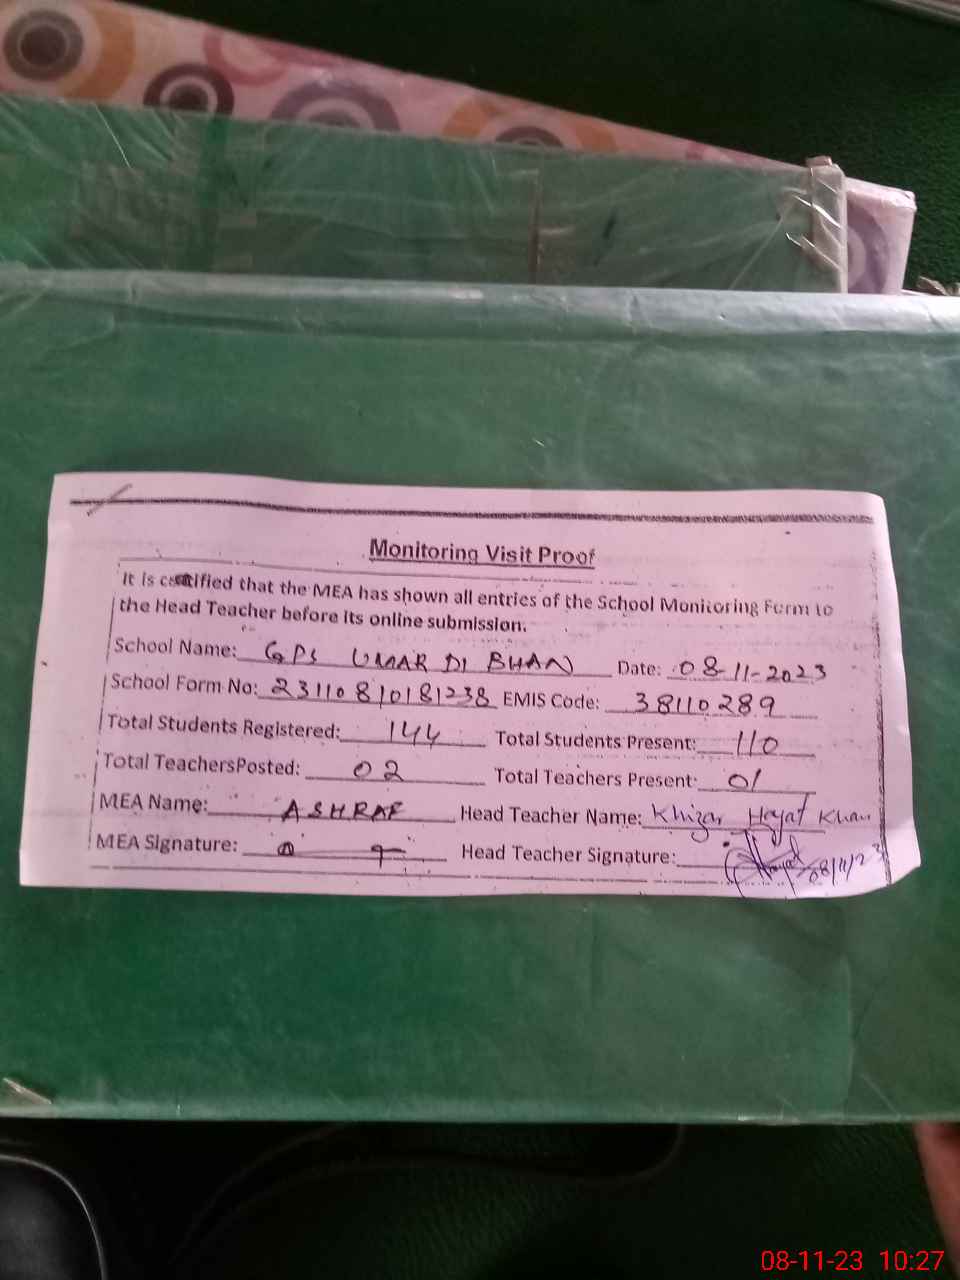 Monitoring Visit Proof
It is certified that the MEA has shown all entries of the School Monitoring Form to
the Head Teacher before its online submission.
School Name: GPS UMAR DI BHAN Date: 08-11-2023
School Form No: 23110810181238 EMIS Code: 38110289
Total Students Registered: 144 Total Students Present: 110
Total TeachersPosted: 02 Total Teachers Present: 01
MEA Name: ASHRAF Head Teacher Name: Khizar Hayat Khan
MEA Signature: Head Teacher Signature: Hayat 08/11/23
08-11-23 10:27